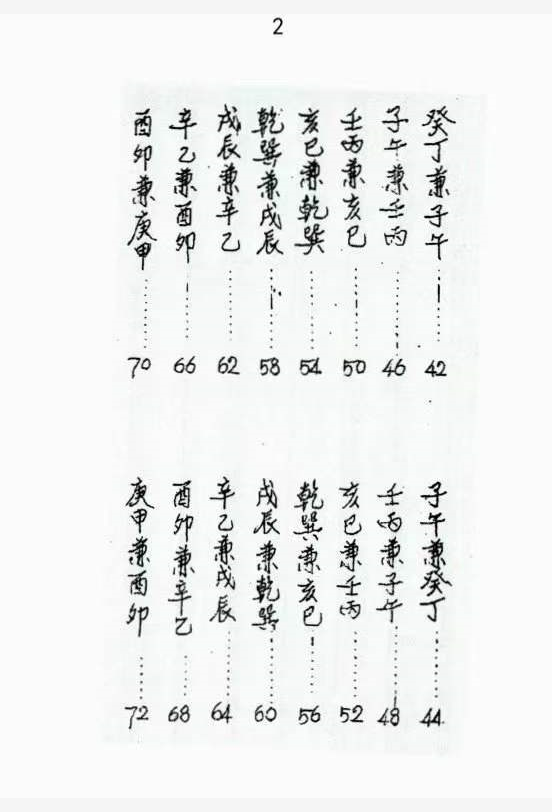 2
癸丁兼子午………42
子午兼癸丁………44
子午兼壬丙………46
壬丙兼子午………48
壬丙兼亥巳………50
亥巳兼壬丙………52
亥巳兼乾巽………54
乾巽兼亥巳………56
乾巽兼戌辰………58
戌辰兼乾巽………60
戌辰兼辛乙………62
辛乙兼戌辰………64
辛乙兼酉卯………66
酉卯兼辛乙………68
酉卯兼庚甲………70
庚甲兼酉卯………72